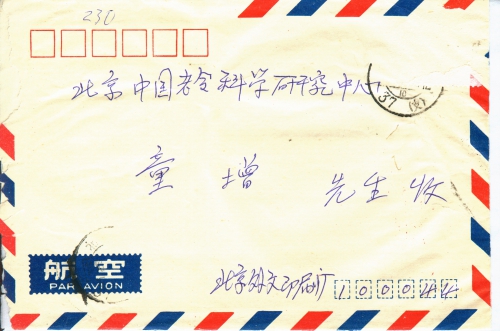 230
北京中国老令科学研究中心
37 (支)
童增 先生 收
航空
PAR AVION
北京外文印刷厂 100044